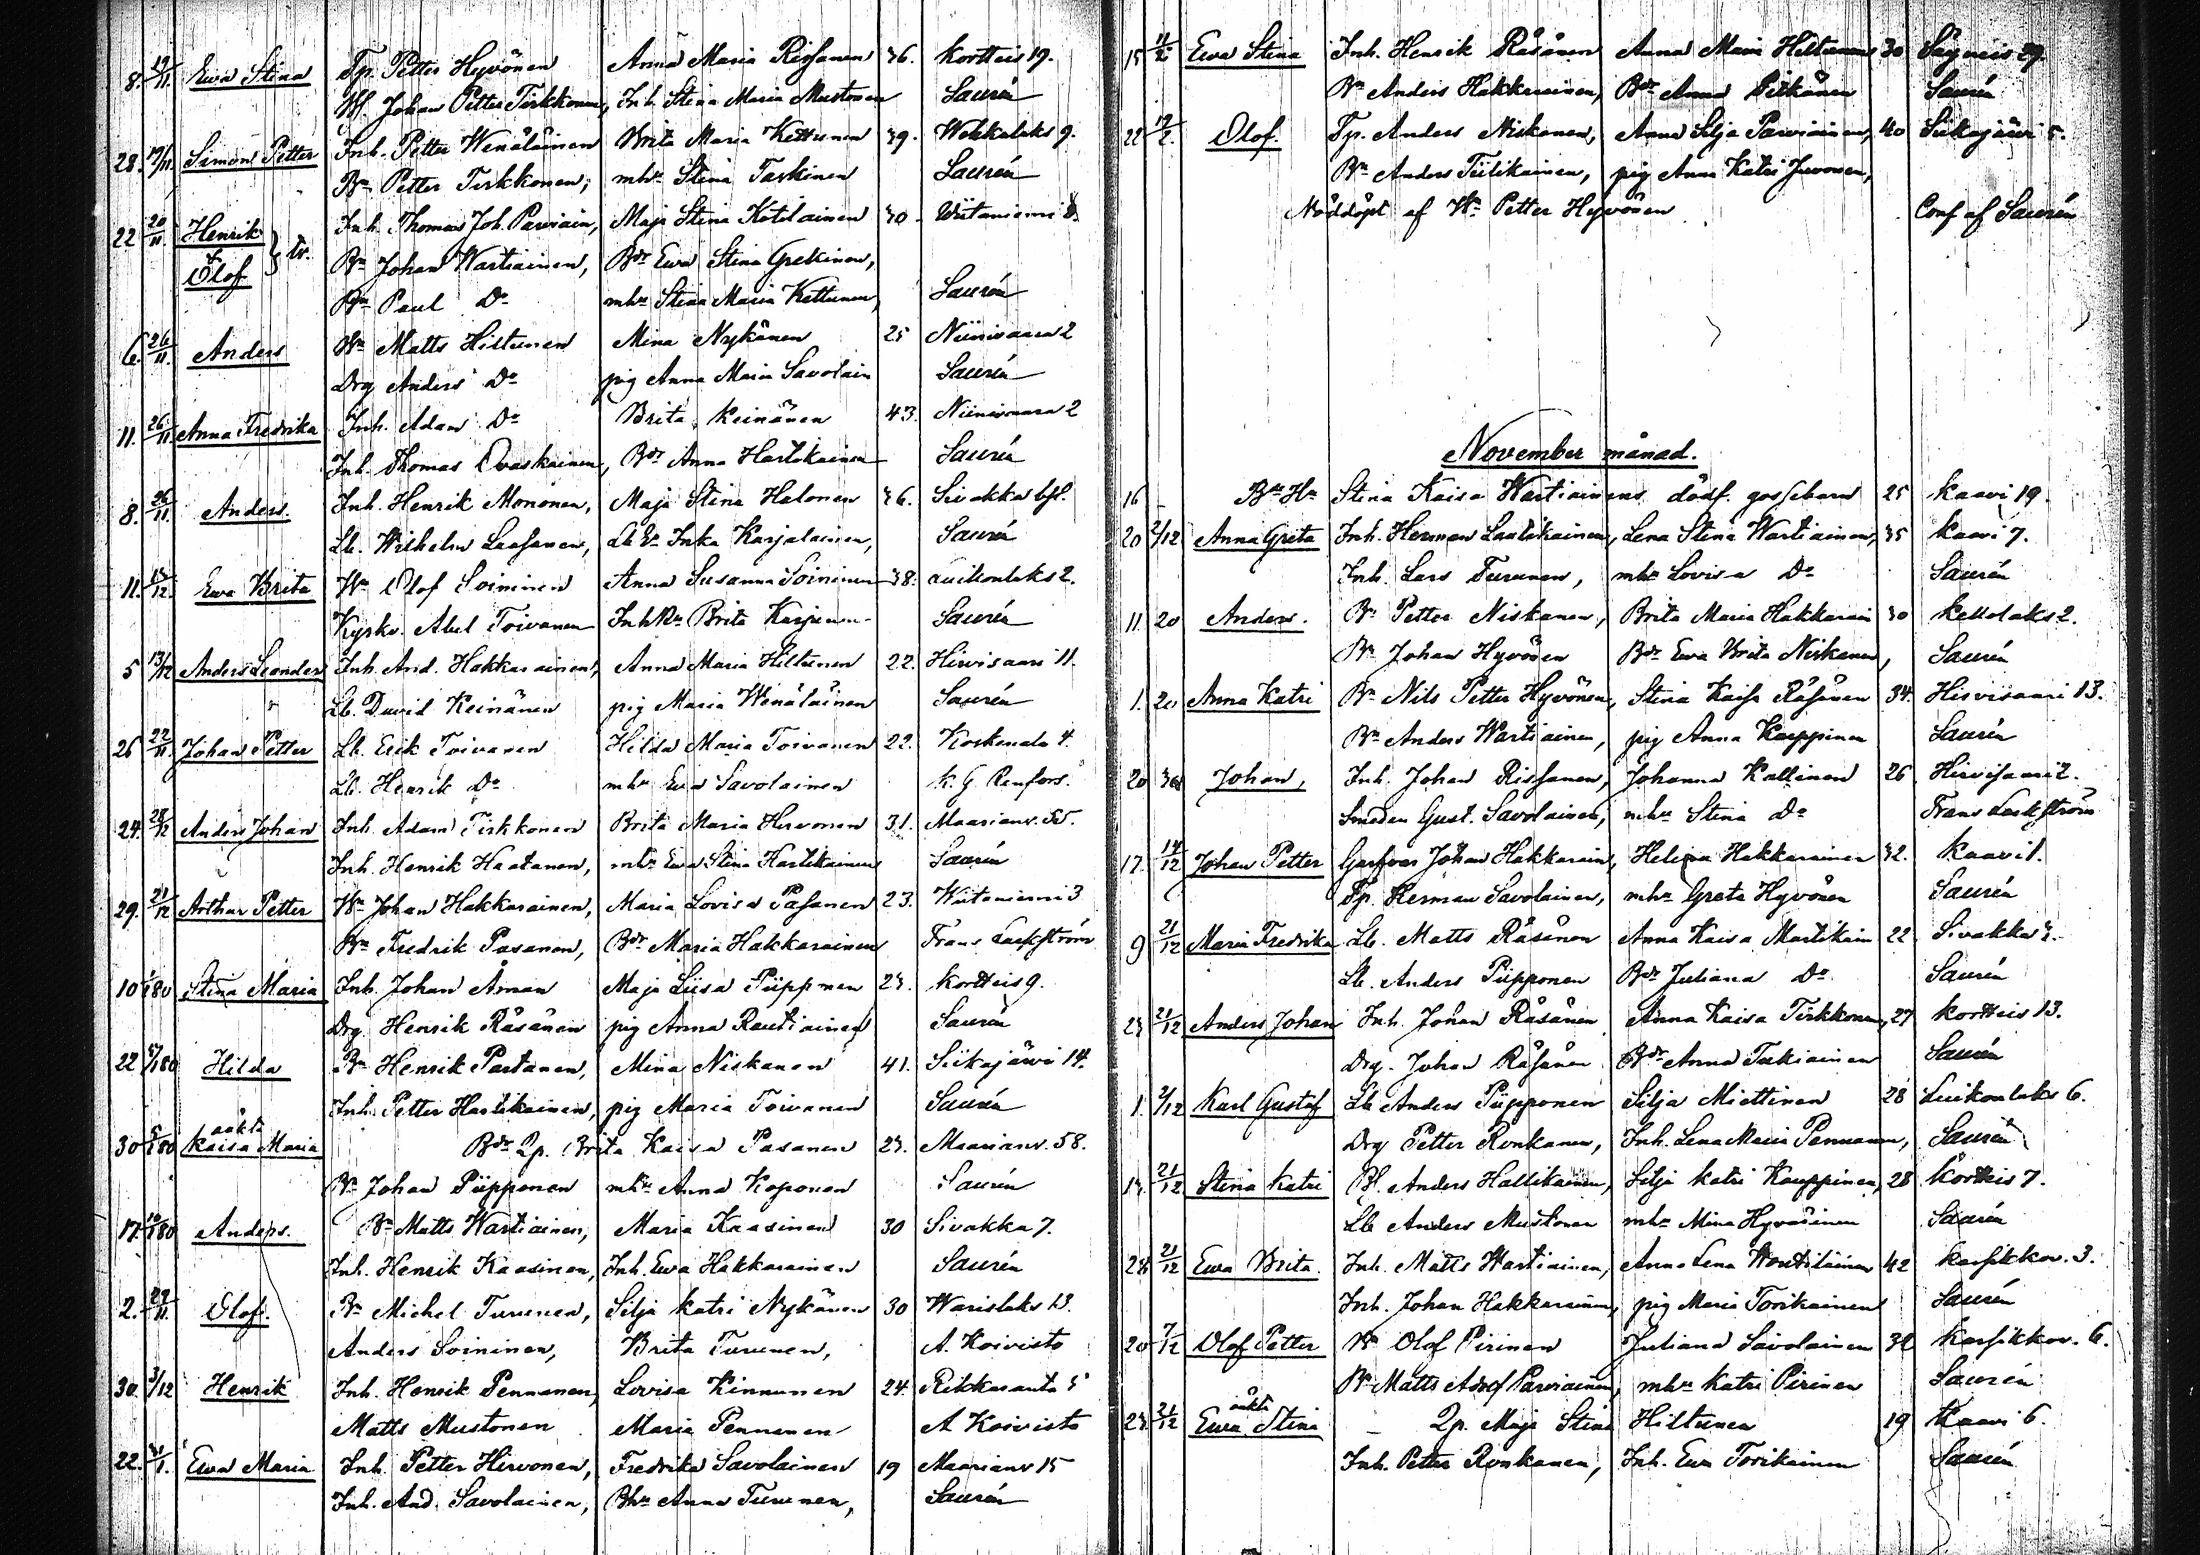 8. 19/11. Ewa Stina Tp. Petter Hyvönen Anna Maria Rissanen 36. Kortteis 19.
Johan Petter Tirkkonen, Inh. Stina Maria Mustonen Saurén
28. 19/11. Simon Petter Inh. Petter Wenäläinen Brita Maria Kettunen 39. Wehkalaks 9.
Bn Petter Tirkkonen, mhu Stina Taskinen Saurén
22 20/11. Henrik Inh. Thomas Joh. Parviain, Maja Stina Kotilainen 30. Wiitaniemi 8.
& Olof } tv. Bn Johan Wartiainen, Bdr Ewa Stina Grekinen,
Bn Paul Do mhu Stina Maria Kettunen, Saurén
6. 26/11. Anders Wn Matts Hiltunen Mina Nykänen 25 Niinivaara 2
Drg Anders Do pig Anna Maria Savolain Saurén
11. 26/11 Anna Fredrika Inh. Adam Do Brita Keinänen 43. Niinivaara 2
Inh. Thomas Ovaskainen, Bdr Anna Hartikainen Saurén
8. 26/11. Anders. Inh. Henrik Mononen, Maja Stina Halonen 36. Sivakka
Lb. Wilhelm Laasanen, Inka Karjalainen, Saurén
11. 13/12. Ewa Brita Wn Olof Soininen Anna Susanna Soininen 38. Luikonlaks 2.
Kyrkv. Abel Toivanen Brita Saurén
5 13/12 Anders Leander Inh. And. Hakkarainen, Anna Maria Hiltunen 22. Hirvisaari 11.
Lb. David Keinänen pig Maria Wenäläinen Saurén
26 22/11. Johan Petter Lb. Erik Toivanen Hilda Maria Toivanen 22. Koskenala 4.
Lb. Henrik Do mhu Ewa Savolainen K. G. Renfors.
24. 28/12 Anders Johan Inh. Adam Tirkkonen Brita Maria Hirvonen 31. Maarianv. 55.
Inh. Henrik Haatanen, mhu Ewa Stina Hartikainen Saurén
29. 21/12 Arthur Petter Wn Johan Hakkarainen, Maria Lovisa Pasanen 23. Wiitaniemi 3
Bn Fredrik Pasanen, Bdr Maria Hakkarainen Frans Lackström
10 1/180 Stina Maria Inh. Johan Åman Maja Liisa Piipponen 23. Kortteis 9.
Drg. Henrik Räsänen pig Anna Rautiainen Saurén
22 6/180 Hilda Bn Henrik Partanen, Mina Niskanen 41. Siikajärvi 14.
Inh. Petter Hartikainen, pig Maria Toivanen Saurén
oäkta
30 6/180 Kaisa Maria Bdr Qp. Brita Kaisa Pasanen 23. Maarianv. 58.
Bn Johan Piipponen mhu Anna Koponen Saurén
17. 10/180 Anders. Bn Matts Wartiainen, Maria Kaasinen 30 Sivakka 7.
Inh. Henrik Kaasinen, Inh. Ewa Hakkarainen Saurén
2. 29/11. Olof. Bn Michel Turunen, Silja Katri Nykänen 30 Warislaks 13.
Anders Soininen, Brita Turunen, A. Koivisto
30. 3/12 Henrik Inh. Henrik Pennanen, Lovisa Kinnunen 24. Rikkaranta 5
Matts Mustonen Maria Pennanen A Koivisto
22. 31/1. Ewa Maria Inh. Petter Hirvonen, Fredrika Savolainen 19 Maarianv 15
Inh. And. Savolainen, Bhu Anna Turunen, Saurén
15 11/2 Ewa Stina Inh. Henrik Räsänen Anna Maria Hiltunen 30 Säyneis 29.
Bn Anders Hakkarainen, Bdr Anna Pitkänen Saurén
22 12/2. Olof. Tp. Anders Niskanen, Anna Silja Parviainen, 40 Siikajärvi 5.
Bn Anders Tiilikainen, pig Anna Katri Juvonen,
Nöddöpt af Wn Petter Hyvönen Conf af Saurén
November månad.
16 - Bn Hu Stina Kaisa Wartiainens dödf. gossebarn 25 Kaavi 19.
20 2/12 Anna Greta Inh. Herman Laatikainen, Lena Stina Wartiainen, 35 Kaavi 7.
Inh. Lars Turunen, mhu Lovisa Do Saurén
11. 20 Anders. Bn Petter Niskanen, Brita Maria Hakkarain 30 Kettolaks 2.
Bn Johan Hyvönen Bdr Ewa Brita Niskanen, Saurén
1. 20 Anna Katri Bn Nils Petter Hyvönen, Stina Kaisa Räsänen 34. Hirvisaari 13.
Bn Anders Wartiainen, pig Anna Kauppinen Saurén
20 30 Johan, Inh. Johan Rissanen, Johanna Kallinen 26 Hirvisaari 2.
Smeden Gust. Savolainen, mhu Stina Do Frans Lackström
17. 14/12 Johan Petter Johan Hakkarain, Helena Hakkarainen 32. Kaavi 1.
Tp. Herman Savolainen, mhu Greta Hyvönen Saurén
9 21/12 Maria Fredrika Lb. Matts Räsänen Anna Kaisa Martikain 22 Sivakka 2.
Lb. Anders Piipponen Bdr Juliana Do Saurén
23 21/12 Anders Johan Inh. Johan Räsänen Anna Kaisa Tirkkonen, 27 Kortteis 13.
Drg. Johan Räsänen Bdr Anna Tukiainen Saurén
1. 2/12 Karl Gustaf Lb Anders Piipponen Silja Miettinen 28 Luikonlaks 6.
Drg Petter Ronkanen, Inh. Lena Maria Pennanen, Saurén
13. 21/12 Stina Katri Anders Hallikainen, Silja Katri Kauppinen, 28 Kortteis 7.
Lb Anders Mustonen mhu Mina Hyvärinen Saurén
28 21/12 Ewa Brita. Inh. Matts Wartiainen, Anna Lena Woutilainen 42 Karsikkov. 3.
Inh. Johan Hakkarainen, pig Maria Torikainen Saurén
20 7/12 Olof Petter Bn Olof Pirinen Juliana Savolainen 32 Karsikkov. 6.
Bn Matts Adolf Parviainen, mhu Katri Pirinen Saurén
oäkta
23 21/12 Ewa Stina Qp. Maja Stina Hiltunen 19 Kaavi 6.
Inh. Petter Ronkanen, Inh. Ewa Torikainen Saurén